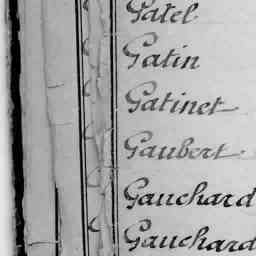 Gatel
Gatin
Gatinet
Gaubert
Gauchard
Gauchard